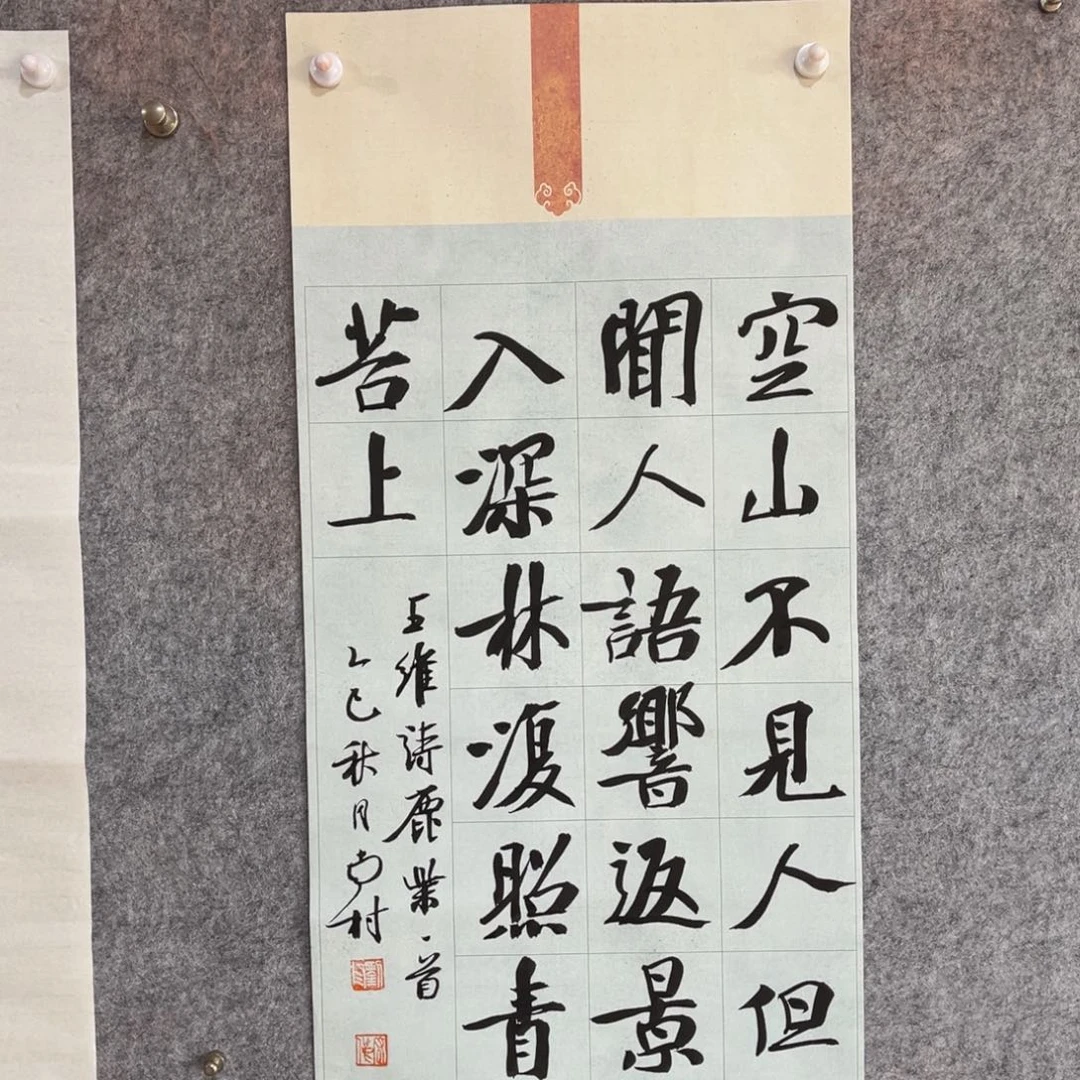 空山不見人但
聞人語響返景
入深林復照青
苔上
王維詩鹿柴一首
乙巳秋月尚村